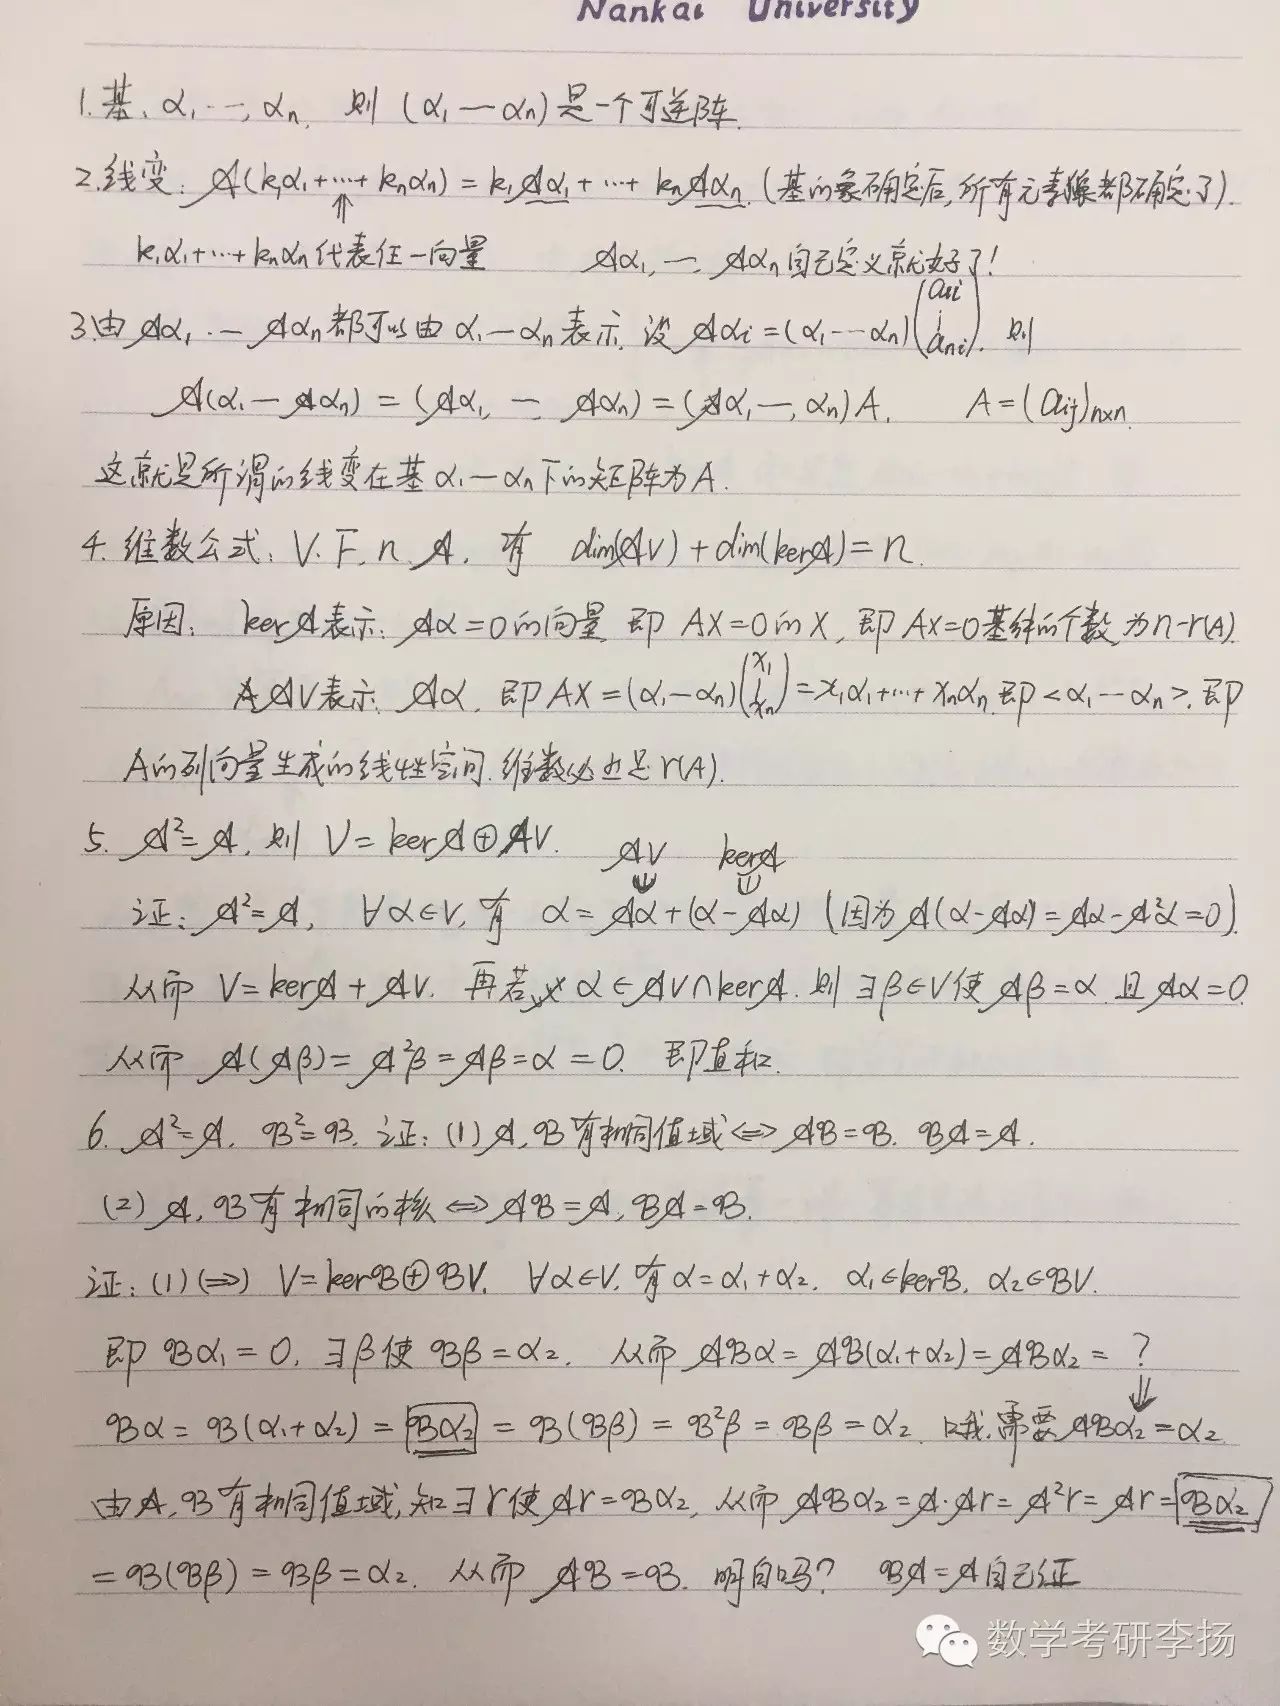 Nankai University
1.基、α₁,…,αₙ, 则 (α₁—αₙ)是一个可逆阵.
2.线变: 𝒜(k₁α₁+…+kₙαₙ)=k₁𝒜α₁+…+kₙ𝒜αₙ.(基的象确定后,所有元素像都确定了).
⇑
k₁α₁+…+kₙαₙ代表任一向量 𝒜α₁,—,𝒜αₙ自己定义就好了!
3.由𝒜α₁,—𝒜αₙ都可以由α₁—αₙ表示.设𝒜αᵢ=(α₁—αₙ)(a₁ᵢ ⋮ aₙᵢ). 则
𝒜(α₁—𝒜αₙ)=(𝒜α₁,—,𝒜αₙ)=(𝒜α₁,—,αₙ)A. A=(aᵢⱼ)ₙₓₙ.
这就是所谓的线变在基α₁—αₙ下的矩阵为A.
4.维数公式: V.F.n.𝒜. 有 dim(𝒜V)+dim(ker𝒜)=n.
原因: ker𝒜表示:𝒜α=0的向量,即AX=0的X,即AX=0基础的个数为n-r(A).
𝒜V表示.𝒜α,即AX=(α₁—αₙ)(x₁ | xₙ)=x₁α₁+…+xₙαₙ.即<α₁—αₙ>.即
A的列向量生成的线性空间.维数必也是r(A).
5. 𝒜²=𝒜,则 V=ker𝒜⊕𝒜V. 𝒜V ker𝒜
⇓ ⇓
证: 𝒜²=𝒜, ∀α∈V,有 α=𝒜α+(α-𝒜α) (因为𝒜(α-𝒜α)=𝒜α-𝒜²α=0).
从而 V=ker𝒜+𝒜V. 再若α∈𝒜V∩ker𝒜.则∃β∈V使𝒜β=α.且𝒜α=0.
从而 𝒜(𝒜β)=𝒜²β=𝒜β=α=0. 即直和.
6. 𝒜²=𝒜, ℬ²=ℬ. 证:(1)𝒜,ℬ有相同值域⇔𝒜ℬ=ℬ. ℬ𝒜=𝒜.
(2)𝒜,ℬ有相同的核⇔𝒜ℬ=𝒜,ℬ𝒜=ℬ.
证:(1)(⇒) V=kerℬ⊕ℬV. ∀α∈V,有α=α₁+α₂. α₁∈kerℬ, α₂∈ℬV.
即ℬα₁=0, ∃β使ℬβ=α₂. 从而𝒜ℬα=𝒜ℬ(α₁+α₂)=𝒜ℬα₂=?
⇓
ℬα=ℬ(α₁+α₂)=ℬα₂=ℬ(ℬβ)=ℬ²β=ℬβ=α₂. 只需要𝒜ℬα₂=α₂.
由𝒜,ℬ有相同值域,知∃r使𝒜r=ℬα₂,从而𝒜ℬα₂=𝒜·𝒜r=𝒜²r=𝒜r=ℬα₂
=ℬ(ℬβ)=ℬβ=α₂. 从而 𝒜ℬ=ℬ. 明白吗? ℬ𝒜=𝒜自己证
数学考研李扬